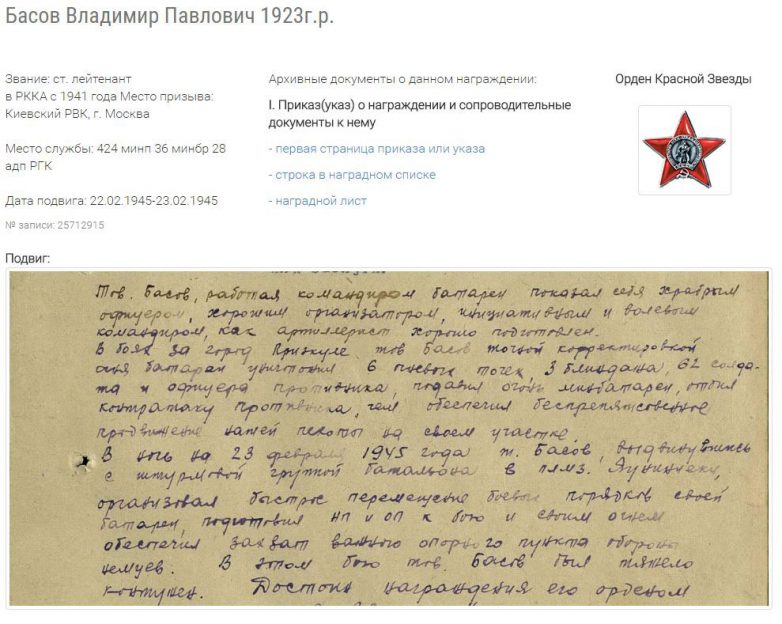 Басов Владимир Павлович 1923г.р.
Звание: ст. лейтенант
в РККА с 1941 года Место призыва:
Киевский РВК, г. Москва
Место службы: 424 минп 36 минбр 28
адп РГК
Дата подвига: 22.02.1945-23.02.1945
№ записи: 25712915
Архивные документы о данном награждении:
I. Приказ(указ) о награждении и сопроводительные
документы к нему
- первая страница приказа или указа
- строка в наградном списке
- наградной лист
Орден Красной Звезды
Подвиг:
Тов. Басов, работая командиром батареи показал себя храбрым
офицером, хорошим организатором, инициативным и волевым
командиром, как артиллерист хорошо подготовлен.
В боях за город тов Басов точной корректировкой
огня батареи уничтожил 6 огневых точек, 3 блиндажа, 62 солда-
та и офицера противника, подавил огонь минбатареи, отбил
контратаку противника, чем обеспечил беспрепятственное
продвижение нашей пехоты на своем участке.
В ночь на 23 февраля 1945 года т. Басов, выдвинувшись
с штурмовой группой батальона в
организовал быстрое перемещение боевых порядков своей
батареи, подготовил НП и ОП к бою и своим огнем
обеспечил захват важного опорного пункта обороны
немцев. В этом бою тов. Басов был тяжело
контужен. Достоин награждения его орденом